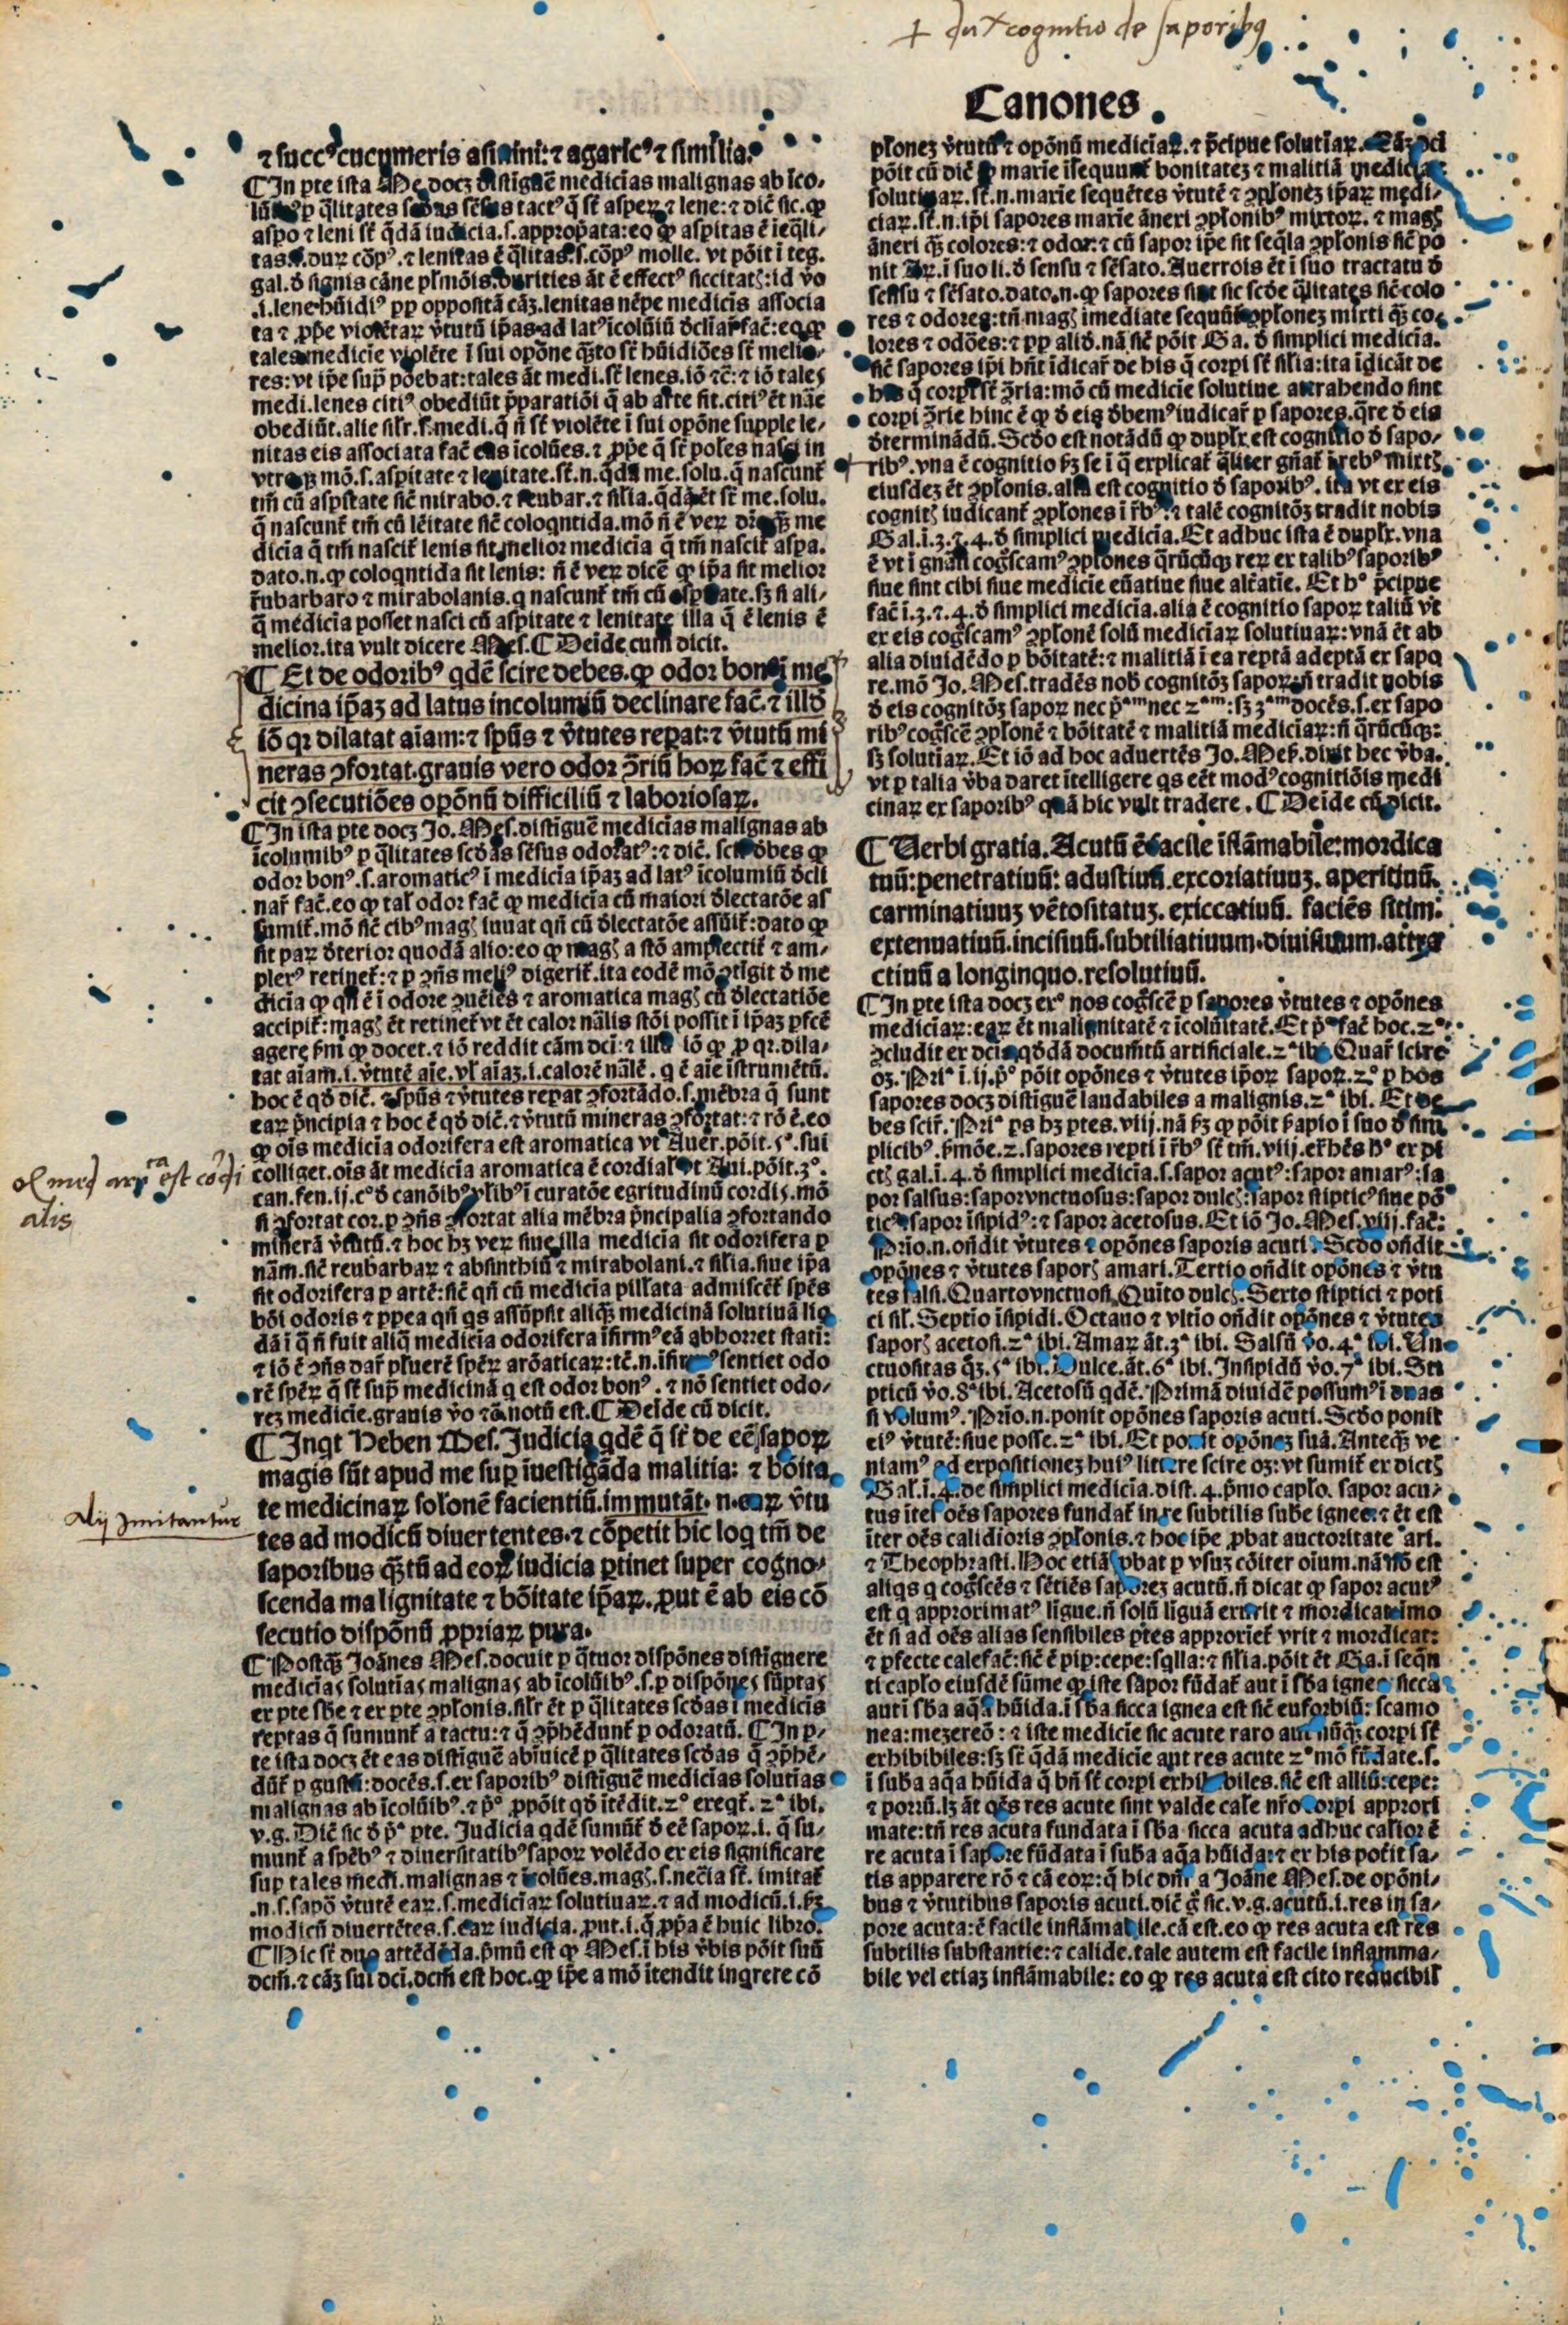 + du˟ cognitio de saporibꝰ
Canones
⁊ succꝰ cucumeris asinini: ⁊ agaricꝰ ⁊ similia.
¶In pte ista Me. docꝫ distiguē medicīas malignas ab ico-
aspo ⁊ leni sūt q̄dā iudicia. s. appropata: eo ꝙ aspitas ē ieq̄li-
gal. ð signis cāne plmōis. durities āt ē effectꝰ siccitatꝭ: id vo
.i. lene hūidiꝰ pp oppositā cāꝫ. lenitas nēpe medicīs associa
tales medicīe violēte ī sui opōne q̄ꝫto sūt hūidiōes sūt melio-
res: vt ipe sup̄ pōebat: tales āt medi. sūt lenes. iō ⁊c̄: ⁊ iō tales
medi. lenes citiꝰ obediūt p̄paratiōi q̄ ab arte fit. citiꝰ ēt nāe
obediūt. alie silr. s. medi. q̄ nō sūt violēte ī sui opōne supple le-
nitas eis associata facē eas icolūes. ⁊ ꝓpe q̄ sūt poles nasci in
vtroqꝫ mō. s. aspitate ⁊ lenitate. sūt. n. q̄dā me. solu. q̄ nascunt̄
tm̄ cū aspitate sic̄ mirabo. ⁊ reubar. ⁊ silia. q̄dā ēt sūt me. solu.
q̄ nascunt̄ tm̄ cū lēitate sic̄ coloqntida. mō nō ē veꝝ dicere qꝫ me
dicīa q̄ tm̄ nascit̄ lenis sit melior medicīa q̄ tm̄ nascit̄ aspa.
dato. n. ꝙ coloqntida sit lenis: nō ē veꝝ dicē ꝙ ipa sit melior
rubarbaro ⁊ mirabolanis. q nascunt̄ tm̄ cū aspitate. sꝫ si ali-
q̄ medicīa posset nasci cū aspitate ⁊ lenitate illa q̄ ē lenis ē
melior. ita vult dicere Mes. ¶Deīde cum dicit.
¶Et de odoribꝰ qdē scire debes. ꝙ odor bonꝰ ī me
dicina ip̄aꝫ ad latus incolumiū declinare fac̄. ⁊ illð
iō qꝛ dilatat aīam: ⁊ sp̄us ⁊ v̄tutes repat: ⁊ v̄tutū mi
neras ꝯfortat. grauis vero odor ꝯriū hoꝝ fac̄ ⁊ effi
cit ꝯsecutiōes opōnū difficiliū ⁊ laboriosaꝝ.
¶In ista pte docꝫ Jo. Mes. distīguē medicīas malignas ab
icolumibꝰ p q̄litates scðas sēsus odoratꝰ: ⁊ dic̄. scire ðbes ꝙ
odor bonꝰ. s. aromaticꝰ ī medicīa ip̄aꝫ ad latꝰ icolumiū ðcli
nar̄ fac̄. eo ꝙ talꝰ odor fac̄ ꝙ medicīa cū maiori ðlectatōe as
sumit̄. mō sic̄ cibꝰ magꝭ iuuat qn̄ cū ðlectatōe assūit̄: dato ꝙ
sit paꝝ ðterior quodā alio: eo ꝙ magꝭ a stō amplectit̄ ⁊ am-
plexꝰ retinet̄: ⁊ p ꝯn̄s meliꝰ digerit̄. ita eodē mō ꝯtīgit ð me
dicīa ꝙ qn̄ ē ī odore ꝯueniēs ⁊ aromatica magꝭ cū ðlectatiōe
accipit̄: magꝭ ēt retinet̄ vt ēt calor nālis stōi possit ī ip̄aꝫ ꝑfcē
agere ẜm ꝙ docet. ⁊ iō reddit cām dci: ⁊ illð iō ꝙ ꝓ qꝛ. dila-
tat aīam. i. v̄tutē aīe. vl̄ aīaꝫ. i. calorē nālē. q ē aīe īstrumētū.
hoc ē qð dic̄. ⁊ sp̄us ⁊ v̄tutes repat ꝯfortādo. s. mēbra q̄ sunt
eaꝝ p̄ncipia ⁊ hoc ē qð dic̄. ⁊ v̄tutū mineras ꝯfortat: ⁊ rō ē. eo
ꝙ oīs medicīa odorifera est aromatica vt Auer. pōit. 5º. sui
colliget. oīs āt medicīa aromatica ē cordialꝭ vt Aui. pōit. 3º.
can. fen. ij. cº ð canōibꝰ vlibꝰ ī curatōe egritudinū cordis. mō
si ꝯfortat cor. p ꝯn̄s ꝯfortat alia mēbra p̄ncipalia ꝯfortando
minerā v̄tutū. ⁊ hoc hꝫ veꝝ siue illa medicīa sit odorifera p
nām. sic̄ reubarbaꝝ ⁊ absinthiū ⁊ mirabolani. ⁊ silia. siue ip̄a
sit odorifera p artē: sic̄ qn̄ cū medicīa pillata admiscēt̄ spēs
bōi odoris ⁊ ꝓpea qn̄ qs assūpsit aliqꝫ medicinā solutiuā liq
dā ī q̄ nō fuit aliq̄ medicīa odorifera īfirmꝰ eā abhorret statī:
rē spēꝝ q̄ sūt sup̄ medicinā q est odor bonꝰ. ⁊ nō sentiet odo-
reꝫ medicīe. grauis v̄o ⁊ā notū est. ¶Deīde cū dicit.
¶Inqt Heben Mes. Judicia qdē q̄ sūt de eē sapoꝝ
magis sūt apud me sup̄ īuestigāda malitia: ⁊ bōita
te medicinaꝝ solōnē facientiū. immutāt. n. eaꝝ v̄tu
tes ad modicū diuertentes. ⁊ cōpetit hic loq tm̄ de
saporibus qꝫtū ad eoꝝ iudicia ptinet super cogno-
scenda malignitate ⁊ bōitate ip̄aꝝ. ꝓut ē ab eis cō
secutio dispōnū ꝓpriaꝝ pura.
¶Postqꝫ Joānes Mes. docuit p q̄tuor dispōnes distīguere
medicīas solutīas malignas ab īcolūibꝰ. s. p dispōnes sūptas
ex pte sbe ⁊ ex pte ꝯplonis. silr ēt p q̄litates scðas ī medicīs
reptas q̄ sumunt̄ a tactu: ⁊ q̄ ꝯp̄hēdunt̄ p odoratū. ¶In p-
te ista docꝫ ēt eas distīguē abīuicē p q̄litates scðas q̄ ꝯp̄hē-
dūt̄ p gustū: docēs. s. ex saporibꝰ distīguē medicīas solutīas
malignas ab īcolūibꝰ. ⁊ pº ꝓpōit qð ītēdit. 2º exeqt̄. 2ª ibi.
v.g. Dic̄ sic ð pª pte. Judicia qdē sumūt̄ ð eē sapoꝝ. i. q̄ su-
munt̄ a spēbꝰ ⁊ diuersitatibꝰ sapoꝝ volēdo ex eis significare
sup tales medi. malignas ⁊ īcolūes. magꝭ. s. necīa sūt. imitāt̄
.n. s. sapōs v̄tutē eaꝝ. s. medicīaꝝ solutiuaꝝ. ⁊ ad modicū. i. ẜm
modicū diuertētes. s. eaꝝ iudicia. ꝓut. i. q̄ ꝓpa ē huic libro.
¶Hic sūt duo attēdēda. p̄mū est ꝙ Mes. ī his v̄bis pōit suū
dcm̄. ⁊ cāꝫ sui dci. dcm̄ est hoc. ꝙ ip̄e a mō ītendit inqrere cō
alij imitantur
ploneꝫ v̄tutū ⁊ opōnū medicīaꝝ. ⁊ p̄cipue solutīaꝝ. Cāꝫ dci
pōit cū dic̄ ꝙ marie īsequunt̄ bonitateꝫ ⁊ malitiā medicīaꝝ
solutiuaꝝ. sūt. n. marie sequētes v̄tutē ⁊ ꝯploneꝫ ip̄aꝝ medi-
ciaꝝ. sūt. n. ip̄i sapores marie āneri ꝯplonibꝰ mixtoꝝ. ⁊ magꝭ
āneri qꝫ colores: ⁊ odor: ⁊ cū sapor ip̄e sit seq̄la ꝯplonis sic̄ po
nit Ar. ī suo li. ð sensu ⁊ sēsato. Auerrois ēt ī suo tractatu ð
sensu ⁊ sēsato. dato. n. ꝙ sapores sint sic scðe q̄litates sic̄ colo
res ⁊ odores: tn̄ magꝭ īmediate sequūt̄ ꝯploneꝫ mixti qꝫ co-
lores ⁊ odōes: ⁊ pp alið. nā sic̄ pōit Ga. ð simplici medicīa.
sic̄ sapores ip̄i hn̄t īdicar̄ de his q̄ corpi sūt silia: ita īdicāt de
his q̄ corpi sūt ꝯria: mō cū medicīe solutiue attrahendo sint
corpi ꝯrie hinc ē ꝙ ð eis ðbemꝰ iudicar̄ p sapores. q̄re ð eis
ðterminādū. Scðo est notādū ꝙ duplx est cognitio ð sapo-
ribꝰ. vna ē cognitio ẜm se ī q̄ explicat̄ q̄liter gn̄āt̄ ī rebꝰ mixtꝭ
eiusdeꝫ ēt ꝯplonis. alia est cognitio ð saporibꝰ. ita vt ex eis
cognitꝭ iudicant̄ ꝯplones ī rebꝰ. ⁊ talē cognitōꝫ tradit nobis
Gal. ī. 3. ⁊. 4. ð simplici medicīa. Et adhuc ista ē duplx. vna
siue sint cibi siue medicīe euatīue siue alt̄atīe. Et hº p̄cipue
fac̄ ī. 3. ⁊. 4. ð simplici medicīa. alia ē cognitio sapoꝝ taliū vt
ex eis cogscamꝰ ꝯplonē solū mediciaꝝ solutiuaꝝ: vnā ēt ab
alia diuidēdo p bōitatē: ⁊ malitiā ī ea reptā adeptā ex sapo
re. mō Jo. Mes. tradēs nob̄ cognitōꝫ sapoꝝ nō tradit nobis
ð eis cognitōꝫ sapoꝝ nec pªᵐ nec 2ªᵐ: sꝫ 3ªᵐ docēs. s. ex sapo
ribꝰ cogscē ꝯplonē ⁊ bōitatē ⁊ malitiā mediciaꝝ: nō q̄rūcūqꝫ:
sꝫ solutīaꝝ. Et iō ad hoc aduertēs Jo. Mes. dixit hec v̄ba.
vt p talia v̄ba daret ītelligere qs eēt modꝰ cognitiōis medi
cinaꝝ ex saporibꝰ quā hic vult tradere. ¶Deīde cū dicit.
¶Verbi gratia. Acutū ē facile īflāmabile: mordica
tiuū: penetratiuū: adustiuū. excoriatiuuꝫ. aperitiuū.
carminatiuuꝫ vētositatuꝫ. exiccatiuū. faciēs sitim:
extenuatiuū. incisiuū. subtiliatiuum. diuisiuum. attra
ctiuū a longinquo. resolutiuū.
¶In pte ista docꝫ exº nos cogscē p sapores v̄tutes ⁊ opōnes
mediciaꝝ: eaꝝ ēt malignitatē ⁊ īcolūitatē. Et pº fac̄ hoc. 2º
ꝯcludit ex dcis qðdā documtū artificiale. 2ª ibi. Quar̄ scire
oꝫ. Priª ī. ij. pº pōit opōnes ⁊ v̄tutes ip̄oꝝ sapoꝝ. 2º p hos
sapores docꝫ distīguē laudabiles a malignis. 2ª ibi. Et de
bes scir̄. Priª ps hꝫ ptes. viij. nā ẜm ꝙ pōit Serapio ī suo ð sim
plicibꝰ. sermōe. 2. sapores repti ī rebꝰ sūt tm̄. viij. exhēs hº ex di
ctꝭ gal. ī. 4. ð simplici medicīa. s. sapor acutꝰ: sapor amarꝰ: sa
por salsus: sapor vnctuosus: sapor dulcꝭ: sapor stipticꝰ siue pō
ticꝰ: sapor īsipidꝰ: ⁊ sapor acetosus. Et iō Jo. Mes. viij. fac̄:
Prīo. n. on̄dit v̄tutes ⁊ opōnes saporis acuti. Scðo on̄dit
opōnes ⁊ v̄tutes saporꝭ amari. Tertio on̄dit opōnes ⁊ v̄tu
tes salsi. Quarto vnctuosi. Quīto dulcꝭ. Sexto stiptici ⁊ poti
ci sil. Septīo īsipidi. Octauo ⁊ vltīo on̄dit opōnes ⁊ v̄tutes
saporꝭ acetosi. 2ª ibi. Amaꝝ āt. 3ª ibi. Salsū v̄o. 4ª ibi. Vn
ctuositas qꝫ. 5ª ibi. Dulce. āt. 6ª ibi. Insipidū v̄o. 7ª ibi. Sti
pticū v̄o. 8ª ibi. Acetosū qdē. Primā diuidē possumꝰ ī duas
si volumꝰ. Prīo. n. ponit opōnes saporis acuti. Scðo ponit
eiꝰ v̄tutē: siue posse. 2ª ibi. Et ponit opōneꝫ suā. Anteqꝫ ve
niamꝰ ad expositioneꝫ huiꝰ littere scire oꝫ: vt sumit̄ ex dictꝭ
Gal. ī. 4. de simplici medicīa. dist. 4. p̄mo caplo. sapor acu-
tus īter oēs sapores fundat̄ in re subtilis sube ignee: ⁊ ēt est
īter oēs calidioris ꝯplonis. ⁊ hoc ip̄e ꝓbat auctoritate ari.
⁊ Theophrasti. Hoc etiā ꝓbat p vsuꝫ cōiter oium. nā nō est
aliqs q cogscēs ⁊ sētiēs saporeꝫ acutū. nō dicat ꝙ sapor acutꝰ
est q approximatꝰ līgue. nō solū līguā exurit ⁊ mordicat: imo
ēt si ad oēs alias sensibiles ptes approxīet̄ vrit ⁊ mordicat:
⁊ pfecte calefac̄: sic̄ ē pip: cepe: sqlla: ⁊ silia. pōit ēt Ga. ī seqn̄
ti caplo eiusdē sūme ꝙ iste sapor fūdat̄ aut ī sba ignea sicca
aut ī sba aq̄a hūida. ī sba sicca ignea est sic̄ euforbiū: scamo
nea: meꝫereō: ⁊ iste medicīe sic acute raro aut nūqꝫ corpi sūt
exhibibiles: sꝫ sūt q̄dā medicīe aut res acute 2º mō fūdate. s.
ī suba aq̄a hūida q̄ bn̄ sūt corpi exhibibiles. sic̄ est alliū: cepe:
⁊ porrū. lꝫ āt oēs res acute sint valde cale nr̄o corpi approxi
mate: tn̄ res acuta fundata ī sba sicca acuta adhuc calior ē
re acuta ī sapore fūdata ī suba aq̄a hūida: ⁊ ex his potit sa-
tis apparere rō ⁊ cā eoꝝ: q̄ hic dn̄r a Joāne Mes. de opōni-
bus ⁊ v̄tutibus saporis acuti. dic̄ g̊ sic. v.g. acutū. i. res in sa-
pore acuta: ē facile inflāmabile. cā est. eo ꝙ res acuta est res
subtilis substantie: ⁊ calide. tale autem est facile inflamma-
bile vel etiaꝫ inflāmabile: eo ꝙ res acuta est cito reducibilꝭ